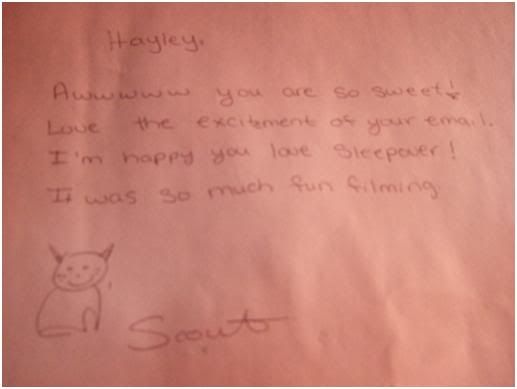 Hayley.
Awwwww you are so sweet!
Love the excitement of your email.
I'm happy you love Sleepover!
It was so much fun filming
Scout